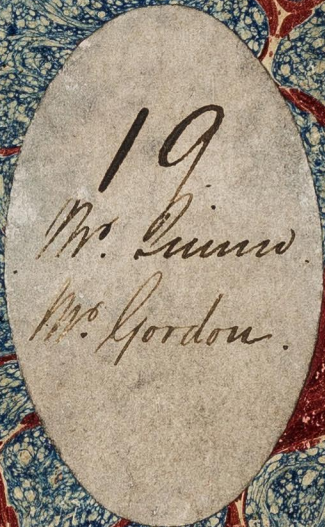 19
Mr. Quinn.
Mr. Gordon.